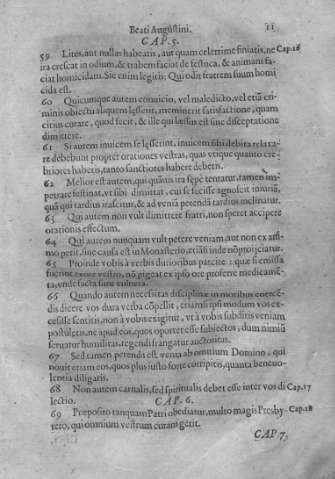 Beati Augustini. 11
CAP. 5.
59 Lites, aut nullas habeatis, aut quam celerrime finiatis, ne Cap. 16
ira crescat in odium, & trabem faciat de festuca, & animam fa-
ciat homicidam. Sic enim legitis: Qui odit fratrem suum homi
cida est.
60 Quicumque autem conuicio, vel maledicto, vel etiã cri-
minis obiectu aliquem læserit, meminerit satisfactione, quam
citius curare, quod fecit, & ille qui læsus est sine disceptatione
dimittere.
61 Si autem inuicem se læserint, inuicem sibi debita relaxa-
re debebunt propter orationes vestras, quas vtique quanto cre-
briores habetis, tanto sanctiores habere debetis.
62 Melior est autem, qui quãuis ira sæpè tentatur, tamen im-
petrare festinat, vt sibi dimittat, cui se fecisse agnoscit iniuriã,
quã qui tardius irascitur, & ad veniã petendã tardius inclinatur.
63 Qui autem non vult dimittere fratri, non speret accipere
orationis effectum.
64 Qui autem nunquam vult petere veniam, aut non ex ani-
mo petit, sine causa est in Monasterio, etiãsi inde nõ projiciatur.
65 Proinde vobis à verbis durioribus parcite: quæ si emissa
fuerint ex ore vestro, nõ pigeat ex ipso ore proferre medicamẽ-
ta, vnde facta sunt vulnera.
66 Quando autem necessitas disciplinæ in moribus coercẽ-
dis dicere vos dura verba cõpellit, etiamsi ipsi modum vos ex-
cessisse sentitis, non à vobis exigitur, vt à vobis subditis veniam
postuletis, ne apud eos, quos oportet esse subiectos, dum nimiũ
seruatur humilitas, regendi frangatur auctoritas.
67 Sed tamen petenda est venia ab omnium Domino, qui
nouit etiam eos, quos plus iusto forte corripitis, quanta beneuo-
lentia diligatis.
68 Non autem carnalis, sed spiritualis debet esse inter vos di Cap. 17
lectio. CAP. 6.
69 Præposito tanquam Patri obediatur, multo magis Presby- Cap. 18
tero, qui omnium vestrum curam gerit.
CAP 7.